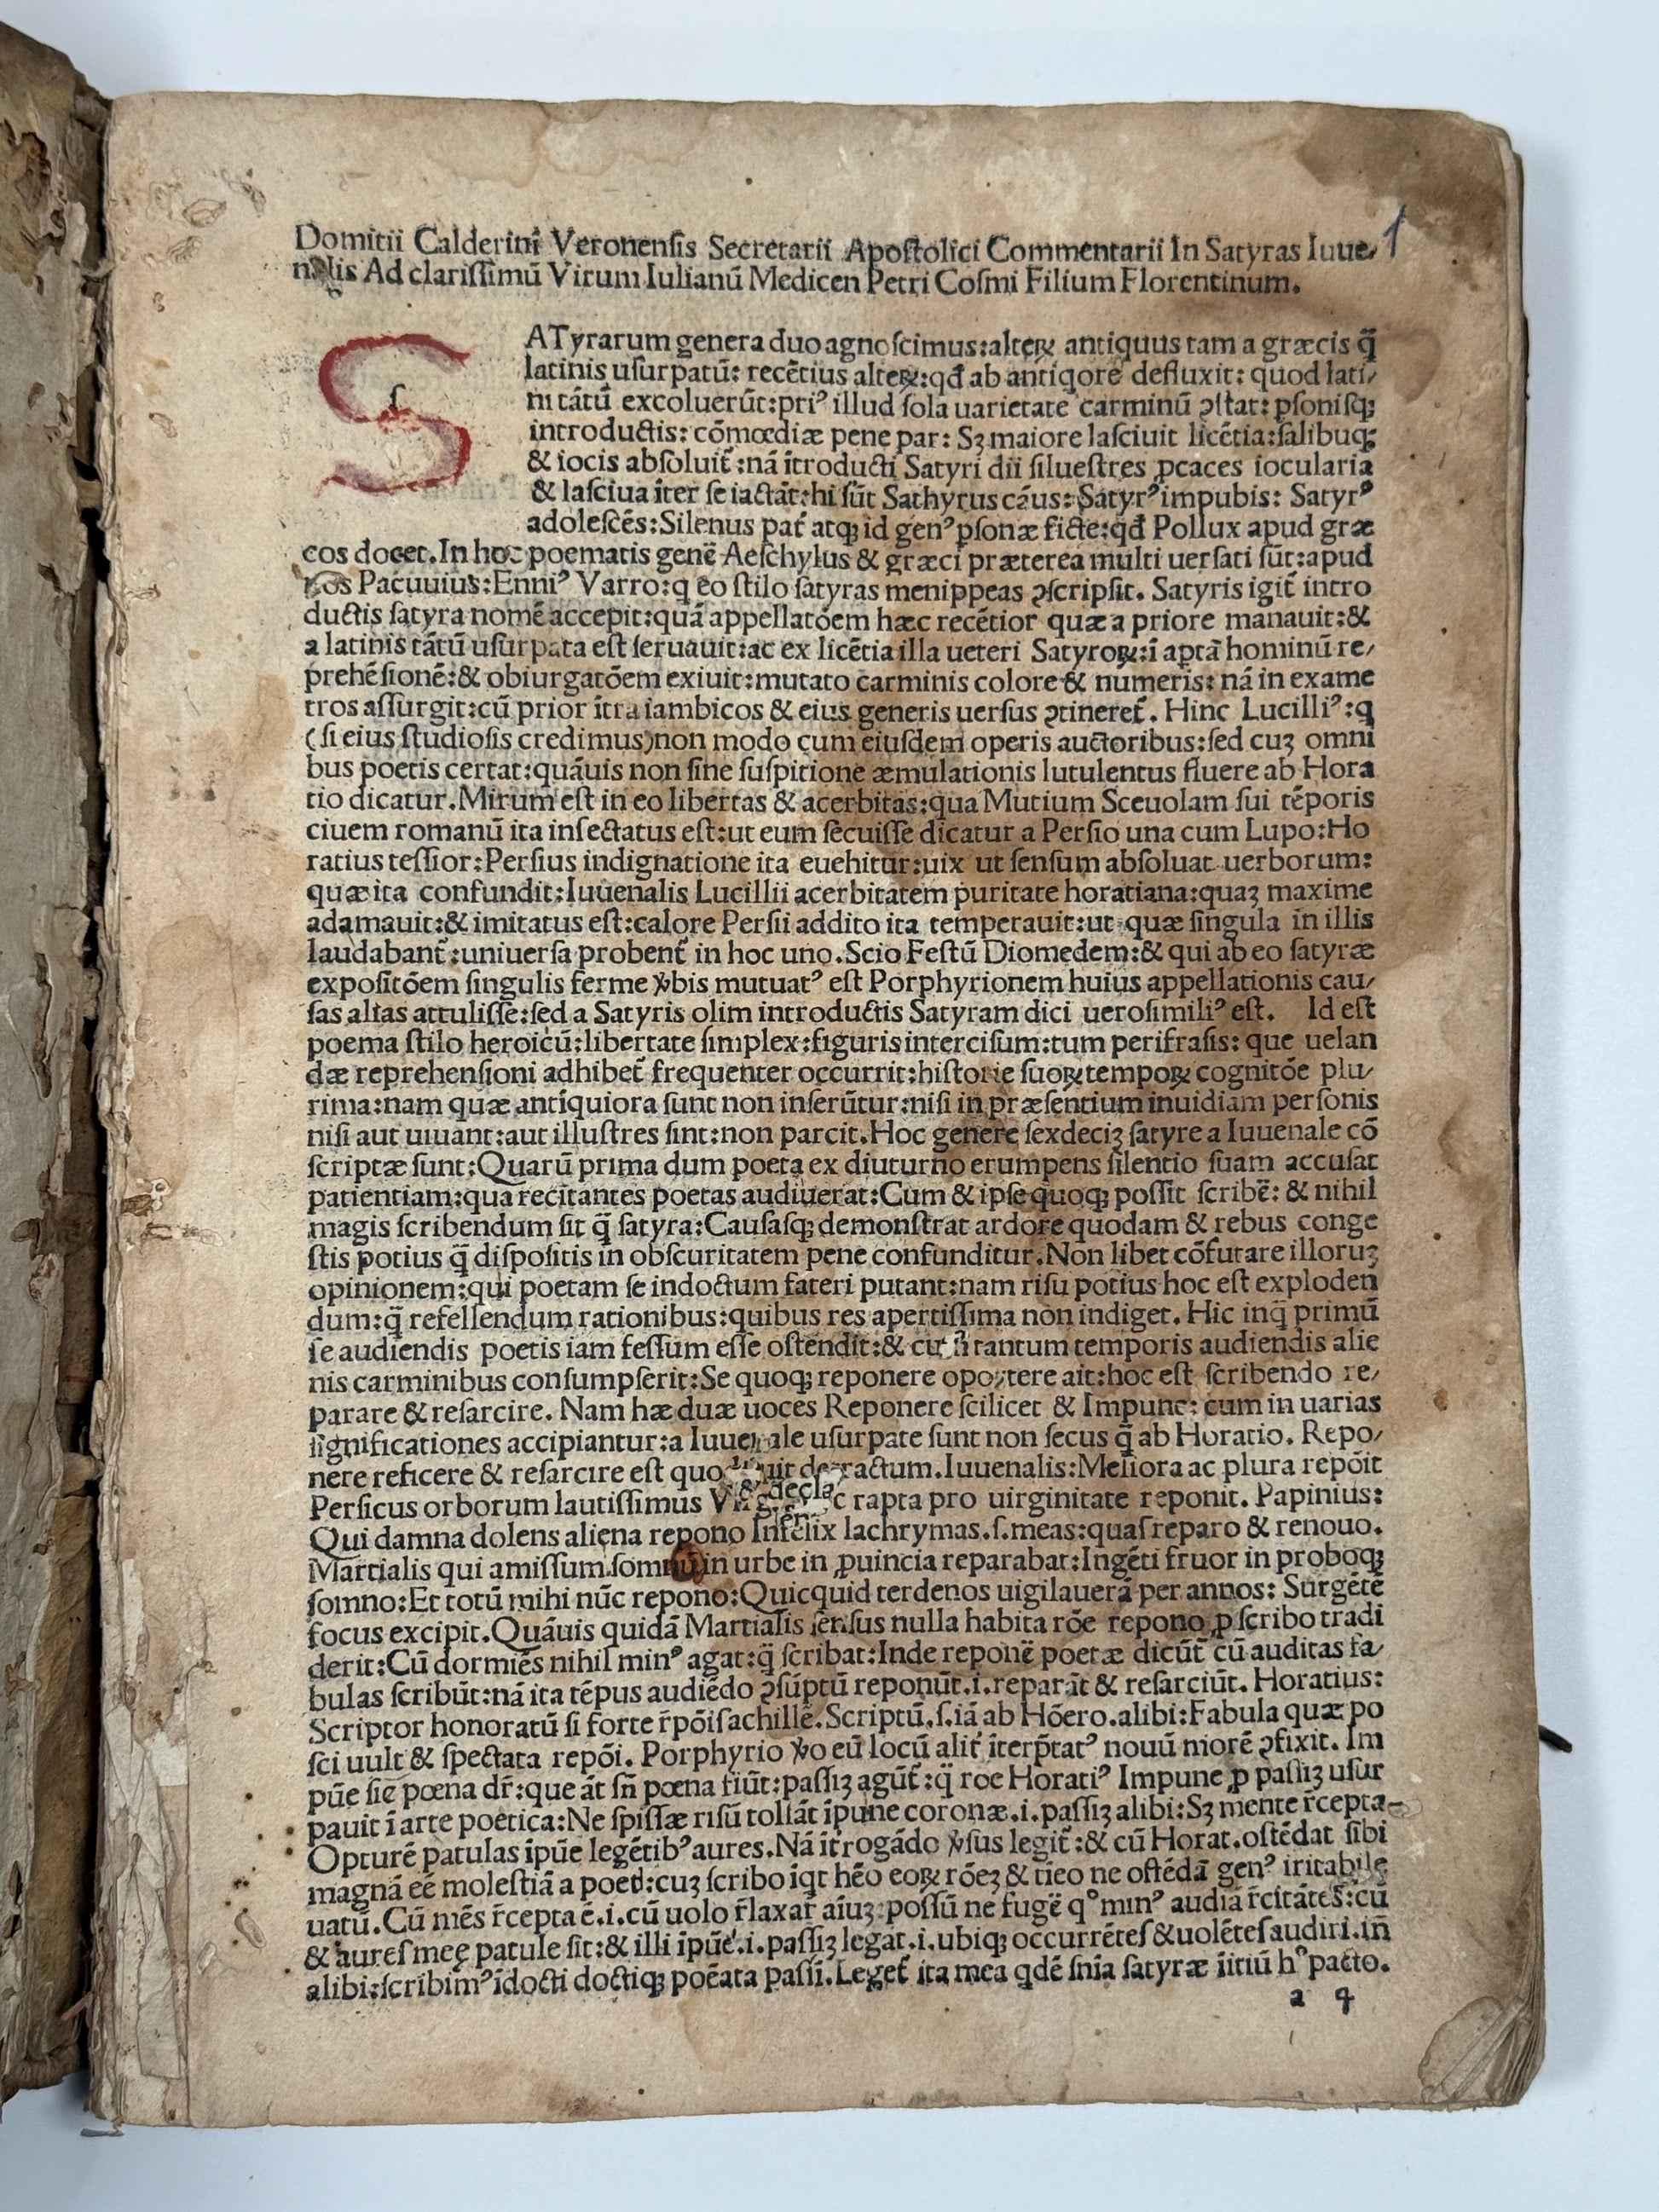 1
Domitii Calderini Veronensis Secretarii Apostolici Commentarii In Satyras Iuue/
nalis Ad clarissimū Virum Iulianū Medicen Petri Cosmi Filium Florentinum.
S
ſ
ATyrarum genera duo agnoſcimus:alteꝝ antiquus tam a græcis q̃
latinis uſurpatū: recētius alteꝝ:qđ ab antiqore defluxit: quod lati/
ni tātū excoluerūt:pri⁹ illud ſola uarietate carminū ꝯſtat: pſoniſqꝫ
introductis: cōmœdiæ pene par: Sꝫ maiore laſciuit licētia:ſalibuqꝫ
& iocis abſoluit̃:nā ītroducti Satyri dii ſilueſtres ꝓcaces iocularia
& laſciua īter ſe iactāt:hi ſūt Sathyrus cāus: Satyr⁹ impubis: Satyr⁹
adoleſcēs:Silenus pat̃ atqꝫ id gen⁹ pſonæ ficte:qđ Pollux apud græ
cos docet.In hoc poematis genē Aeſchylus & græci præterea multi uerſati ſūt:apud
nos Pacuuius:Enni⁹ Varro:q eo ſtilo ſatyras menippeas ꝯſcripſit. Satyris igit̃ intro
ductis ſatyra nomē accepit:quā appellatōem hæc recētior quæ a priore manauit:&
a latinis tātū uſurpata eſt ſeruauit:ac ex licētia illa ueteri Satyroꝝ:ī aptā hominū re/
prehēſionē:& obiurgatōem exiuit:mutato carminis colore & numeris: nā in exame
tros aſſurgit:cū prior ītra iambicos & eius generis uerſus ꝯtineret̃. Hinc Lucilli⁹:q
(ſi eius ſtudioſis credimus)non modo cum eiuſdem operis auctoribus:ſed cuꝫ omni
bus poetis certat:quāuis non ſine ſuſpitione æmulationis lutulentus fluere ab Hora
tio dicatur.Mirum eſt in eo libertas & acerbitas:qua Mutium Sceuolam ſui tēporis
ciuem romanū ita inſectatus eſt:ut eum ſecuiſſe dicatur a Perſio una cum Lupo:Ho
ratius teſſior:Perſius indignatione ita euehitur:uix ut ſenſum abſoluat uerborum:
quæ ita confundit:Iuuenalis Lucillii acerbitatem puritate horatiana:quaꝫ maxime
adamauit:& imitatus eſt:calore Perſii addito ita temperauit:ut quæ ſingula in illis
laudabant̃:uniuerſa probent̃ in hoc uno.Scio Feſtū Diomedem:& qui ab eo ſatyræ
expoſitōem ſingulis ferme ꝟbis mutuat⁹ eſt Porphyrionem huius appellationis cau/
ſas alias attuliſſe:ſed a Satyris olim introductis Satyram dici ueroſimili⁹ eſt. Id eſt
poema ſtilo heroicū:libertate ſimplex:figuris interciſum:tum perifraſis: que uelan
dæ reprehenſioni adhibet̃ frequenter occurrit:hiſtorie ſuoꝝ tempoꝝ cognitōe plu/
rima:nam quæ antiquiora ſunt non inſerūtur:niſi in præſentium inuidiam perſonis
niſi aut uiuant:aut illuſtres ſint:non parcit.Hoc genere ſexdeciꝫ ſatyre a Iuuenale cō
ſcriptæ ſunt:Quarū prima dum poeta ex diuturno erumpens ſilentio ſuam accuſat
patientiam:qua recitantes poetas audiuerat:Cum & ipſe quoqꝫ poſſit ſcribē: & nihil
magis ſcribendum ſit q̃ ſatyra:Cauſaſqꝫ demonſtrat ardore quodam & rebus conge
ſtis potius q̃ diſpoſitis in obſcuritatem pene confunditur.Non libet cōfutare illoruꝫ
opinionem:qui poetam ſe indoctum fateri putant:nam riſu potius hoc eſt exploden
dum:q̃ refellendum rationibus:quibus res apertiſſima non indiget. Hic inq̃ primū
ſe audiendis poetis iam feſſum eſſe oſtendit:& cū tantum temporis audiendis alie
nis carminibus conſumpſerit:Se quoqꝫ reponere oportere ait:hoc eſt ſcribendo re/
parare & reſarcire. Nam hæ duæ uoces Reponere ſcilicet & Impune: cum in uarias
ſignificationes accipiantur:a Iuuenale uſurpate ſunt non ſecus q̃ ab Horatio. Repo/
nere reficere & reſarcire eſt quod fuit detractum.Iuuenalis:Meliora ac plura repōit
Perſicus orborum lautiſſimus rapta pro uirginitate reponit. Papinius:
Qui damna dolens aliena repono Infelix lachrymas.ſ.meas:quaſ reparo & renouo.
Martialis qui amiſſum ſomnū in urbe in ꝓuincia reparabat:Ingēti fruor in proboqꝫ
ſomno:Et totū mihi nūc repono:Quicquid terdenos uigilauerā per annos: Surgētē
focus excipit.Quāuis quidā Martialis ſenſus nulla habita rōe repono ꝓ ſcribo tradi
derit:Cū dormiēs nihil min⁹ agat:q̃ ſcribat:Inde reponē poetæ dicūt̃ cū auditas fa/
bulas ſcribūt:nā ita tēpus audiēdo ꝯſūptū reponūt.i.reparāt & reſarciūt. Horatius:
Scriptor honoratū ſi forte r̃pōiſ achillē.Scriptū.ſ.iā ab Hōero.alibi:Fabula quæ po
ſci uult & ſpectata repōi. Porphyrio ꝟo eū locū alit̃ īterp̄tat⁹ nouū morē ꝯfixit. Im
pūe ſiē pœna dr̃:que āt ſñ pœna fiūt:paſſiꝫ agūt̃:q̃ roe Horati⁹ Impune ꝓ paſſiꝫ uſur
pauit ī arte poetica:Ne ſpiſſæ riſū tollāt īpune coronæ.i.paſſiꝫ alibi:Sꝫ mente r̃cepta
Opturē patulas īpūe legētib⁹ aures.Nā īt̃rogādo ꝟſus legit̃:& cū Horat.oſtēdat ſibi
magnā eē moleſtiā a poet:cuꝫ ſcribo īqt hēo eoꝝ rōeꝫ & tīeo ne oſtēdā gen⁹ iritabile
uatū.Cū mēs r̃cepta ē.i.cū uolo r̃laxar̃ aīuꝫ:poſſū ne fugē qº min⁹ audiā r̃citātes:cū
& aureſ meę patule ſit:& illi īpūe.i.paſſiꝫ legāt.i.ubiqꝫ occurrēteſ & uolēteſ audiri.iñ
alibi:ſcribim⁹ īdocti doctiqꝫ poēata paſſī.Leget̃ ita mea qdē ſnīa ſatyræ īitiū hº pacto.
a